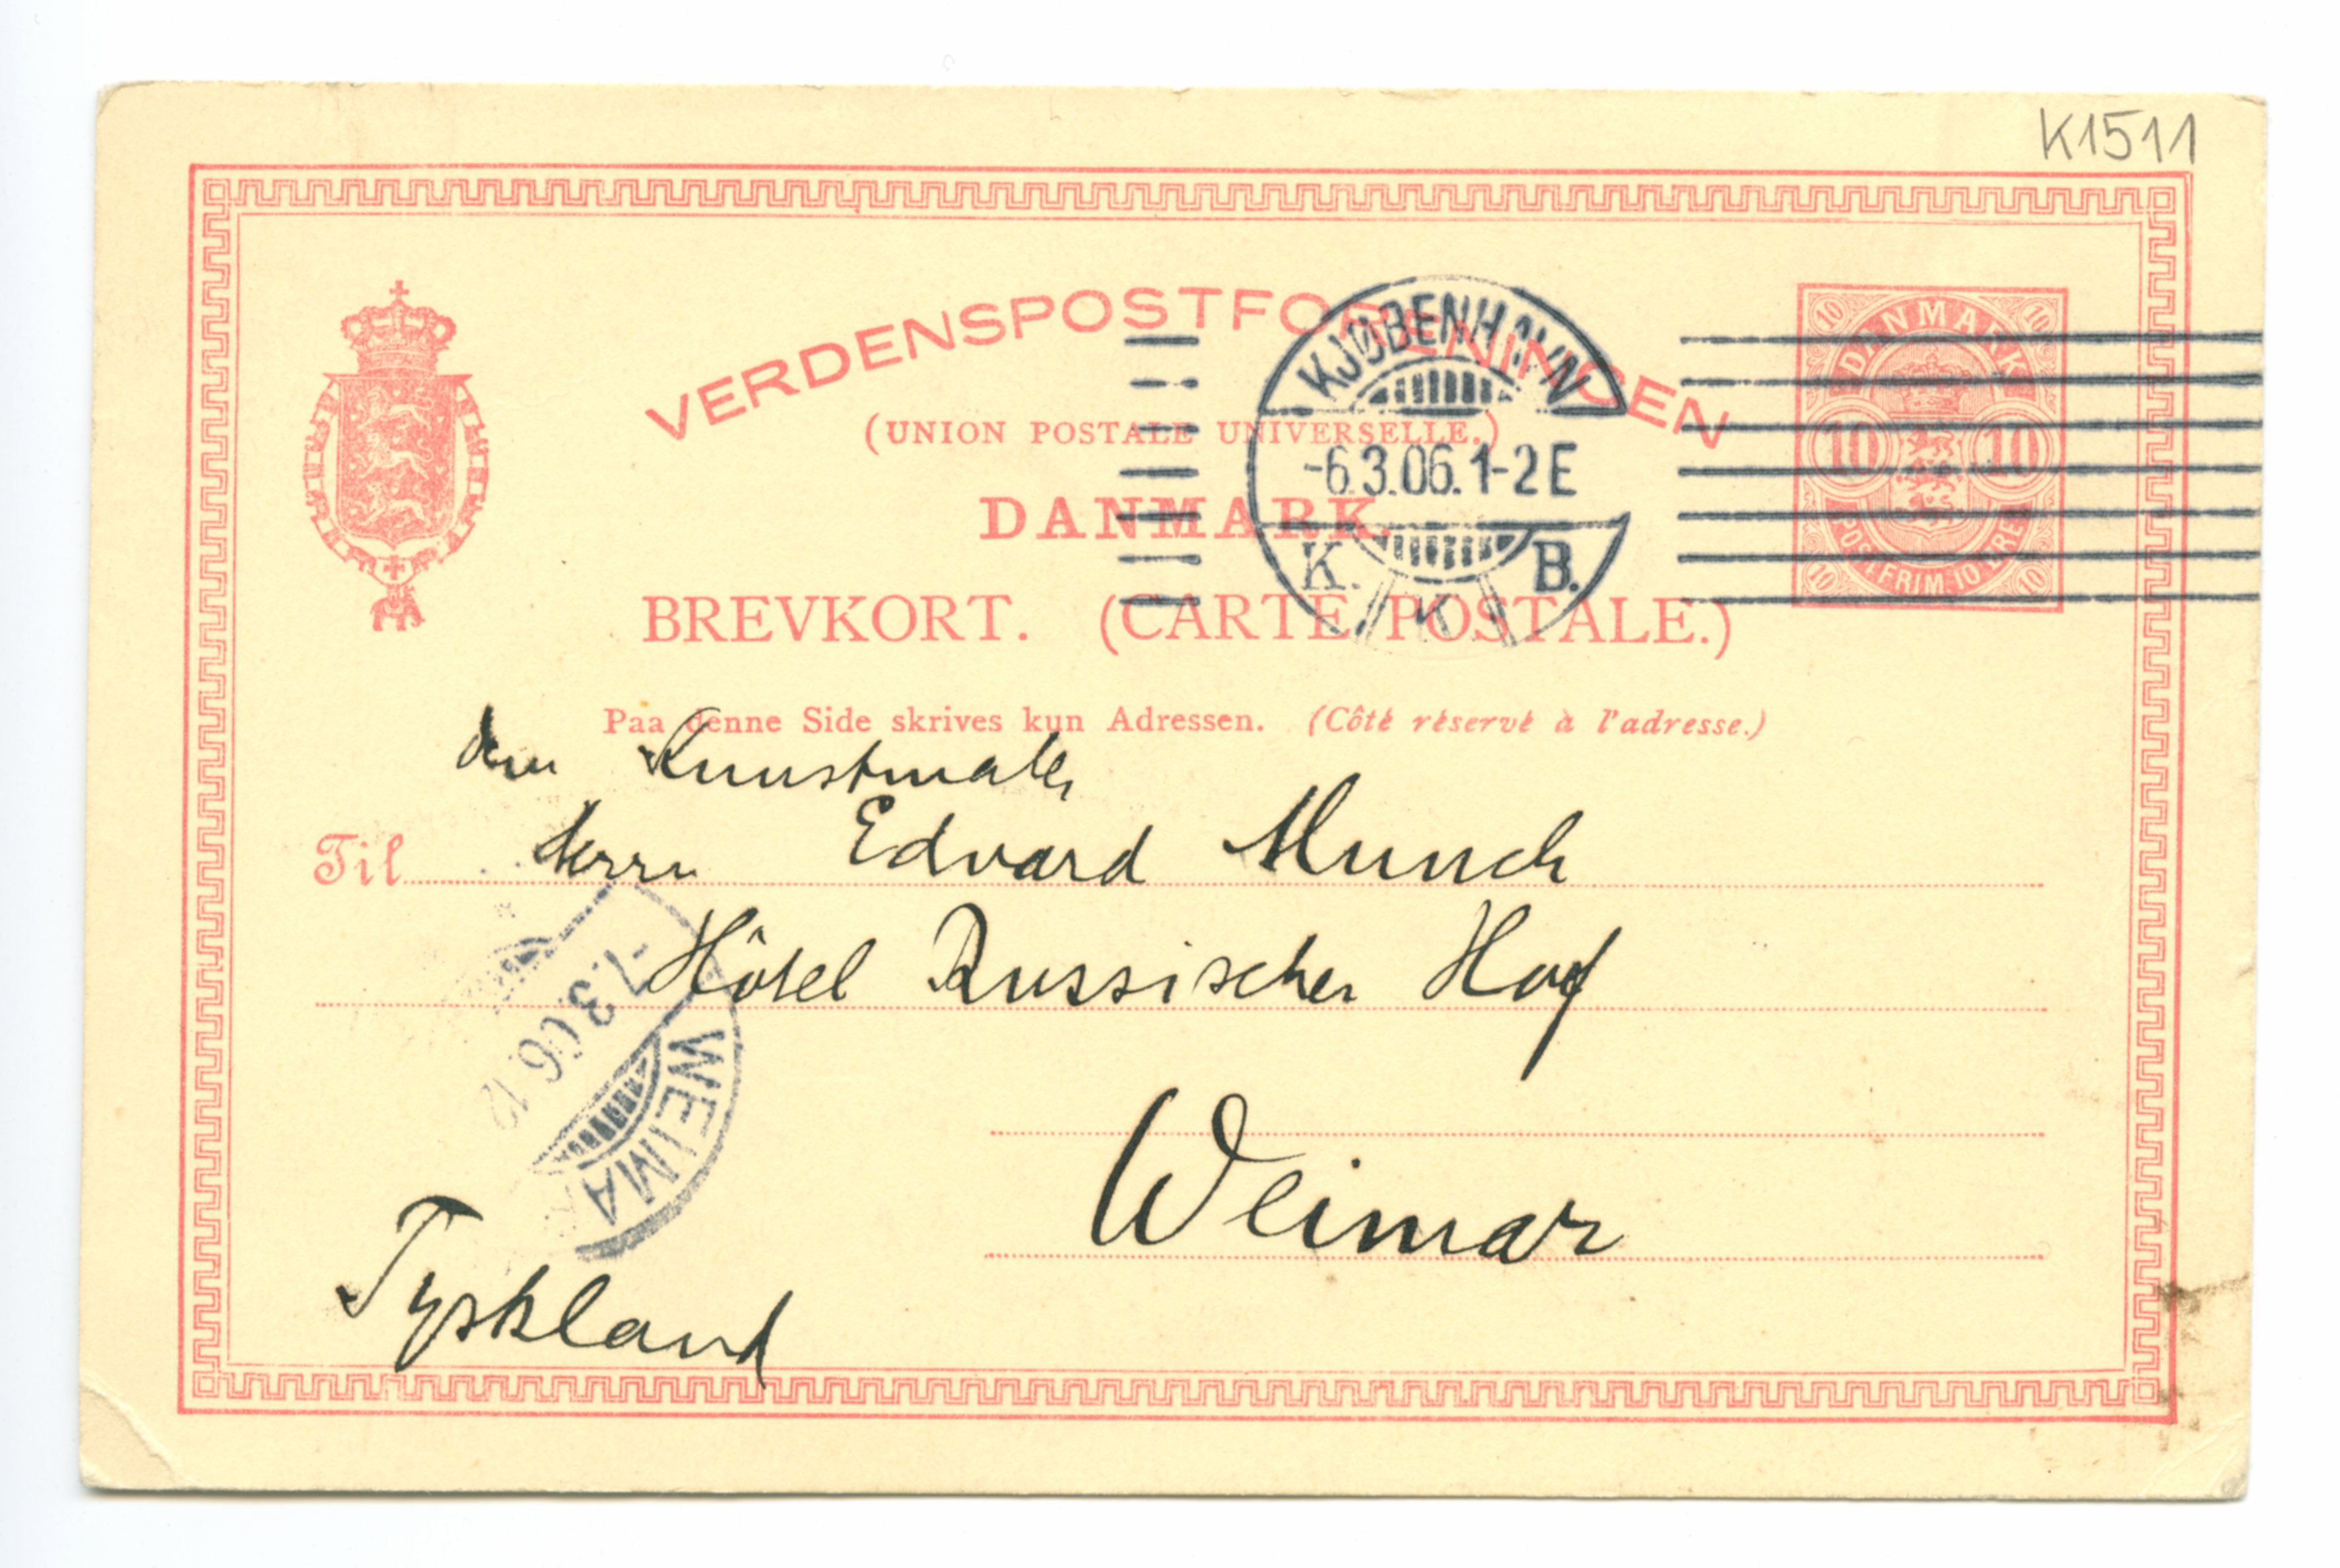 K1511
VERDENSPOSTFORENINGEN
(UNION POSTALE UNIVERSELLE.)
DANMARK.
BREVKORT. (CARTE POSTALE.)
KJØBENHAVN
-6.3.06.1-2E
K. K B.
10 10
DANMARK
10 10
POSTFRIM. 10 ØRE
10 10
Paa denne Side skrives kun Adressen. (Côté réservé à l'adresse.)
dem Kunstmaler
Til Herrn Edvard Munch
Hôtel Russischer Hof
Weimar
Tyskland
WEIMAR
-7.3.06.12